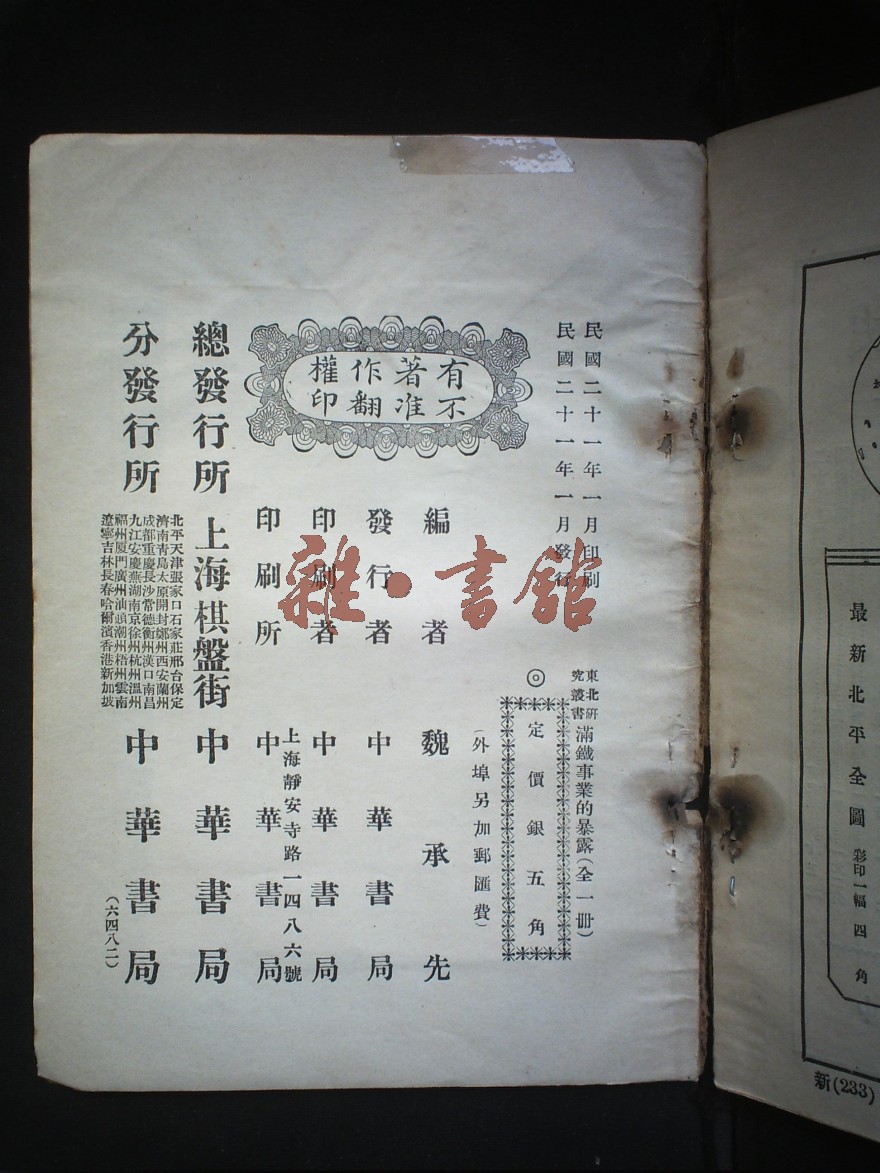 民國二十一年一月印刷
民國二十一年一月發行
東北研究叢書
滿鐵事業的暴露(全一冊)
◎定價銀五角
(外埠另加郵匯費)
有著作權
不准翻印
編者 魏承先
發行者 中華書局
印刷者 中華書局
上海靜安寺路一四八六號
印刷所 中華書局
總發行所 上海棋盤街 中華書局
分發行所
北平天津張家口石家莊邢台保定
濟南青島太原開封鄭州西安蘭州
成都重慶長沙常德衡州漢口南昌
九江安慶蕪湖南京徐州杭州溫州
福州厦門廣州汕頭潮州梧州雲南
遼寧吉林長春哈爾濱香港新加坡
中華書局
(六四八二)
雜·書館
最新北平全圖 彩印一幅四角
新(233)